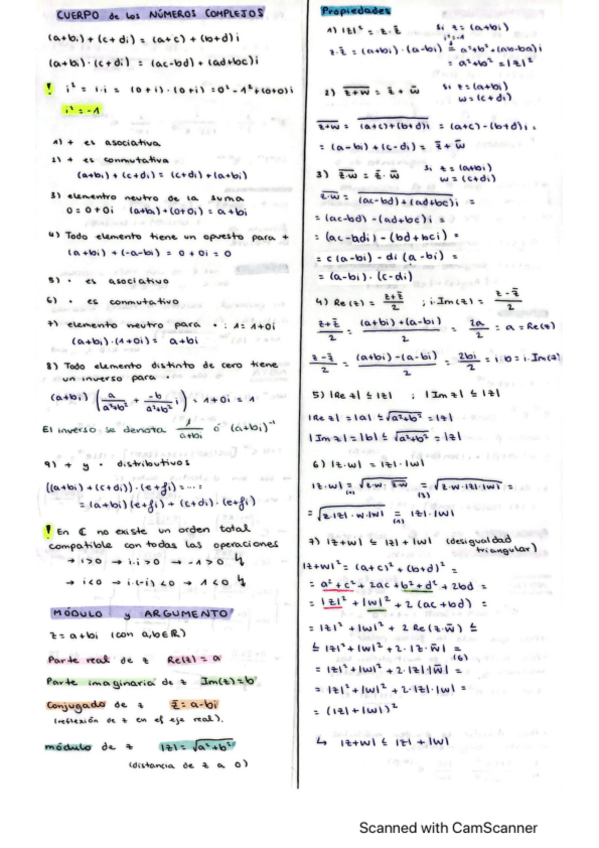 CUERPO de los NÚMEROS COMPLEJOS
(a+bi)+(c+di) = (a+c)+(b+d)i
(a+bi)·(c+di) = (ac-bd)+(ad+bc)i
! i² = i·i = (0+i)·(0+i) = 0²-1²+(0+0)i
i² = -1
1) + es asociativa
2) + es conmutativa
(a+bi)+(c+di) = (c+di)+(a+bi)
3) elemento neutro de la suma
0 = 0+0i (a+bi)+(0+0i) = a+bi
4) Todo elemento tiene un opuesto para +
(a+bi)+(-a-bi) = 0+0i = 0
5) · es asociativo
6) · es conmutativo
7) elemento neutro para · : 1 = 1+0i
(a+bi)·(1+0i) = a+bi
8) Todo elemento distinto de cero tiene
un inverso para ·
(a+bi) (a/(a²+b²) + -b/(a²+b²) i) = 1+0i = 1
El inverso se denota 1/(a+bi) ó (a+bi)⁻¹
9) + y · distributivos
((a+bi)+(c+di))·(e+fi) = ... =
= (a+bi)(e+fi)+(c+di)·(e+fi)
! En ℂ no existe un orden total
compatible con todas las operaciones
→ i>0 → i·i>0 → -1>0 ↯
→ i<0 → i·(-i)<0 → 1<0 ↯
MÓDULO y ARGUMENTO
z = a+bi (con a,b∈ℝ)
Parte real de z Re(z) = a
Parte imaginaria de z Im(z) = b
Conjugado de z z̄ = a-bi
(reflexión de z en el eje real).
módulo de z |z| = √(a²+b²)
(distancia de z a 0)
Propiedades
1) |z|² = z·z̄ Si z = (a+bi)
i²=-1
z·z̄ = (a+bi)·(a-bi) = a²+b²+(ab-ba)i
= a²+b² = |z|²
2) z̅+̅w̅ = z̄ + w̄ Si z = (a+bi)
w = (c+di)
z̅+̅w̅ = (a+c)+(b+d)i = (a+c)-(b+d)i =
= (a-bi)+(c-di) = z̄ + w̄
3) z̅·̅w̅ = z̄·w̄ Si z = (a+bi)
w = (c+di)
z̅·̅w̅ = (ac-bd)+(ad+bc)i =
= (ac-bd)-(ad+bc)i =
= (ac-adi)-(bd+bci) =
= c(a-bi)-di(a-bi) =
= (a-bi)·(c-di)
4) Re(z) = (z+z̄)/2 ; i·Im(z) = (z-z̄)/2
(z+z̄)/2 = ((a+bi)+(a-bi))/2 = 2a/2 = a = Re(z)
(z-z̄)/2 = ((a+bi)-(a-bi))/2 = 2bi/2 = i·b = i·Im(z)
5) |Re z| ≤ |z| ; |Im z| ≤ |z|
|Re z| = |a| ≤ √(a²+b²) = |z|
|Im z| = |b| ≤ √(a²+b²) = |z|
6) |z·w| = |z|·|w|
|z·w| =₍₁₎ √(z·w·z̅·̅w̅) =₍₃₎ √(z·w·z̄·w̄) =
= √(z·z̄·w·w̄) =₍₁₎ |z|·|w|
7) |z+w| ≤ |z|+|w| (desigualdad
triangular)
|z+w|² = (a+c)²+(b+d)² =
= a²+c²+2ac+b²+d²+2bd =
= |z|²+|w|²+2(ac+bd) =
= |z|²+|w|²+2 Re(z·w̄) ≤
≤ |z|²+|w|²+2·|z·w̄| =
(6)
= |z|²+|w|²+2·|z|·|w̄| =
= |z|²+|w|²+2·|z|·|w| =
= (|z|+|w|)²
↳ |z+w| ≤ |z|+|w|
Scanned with CamScanner